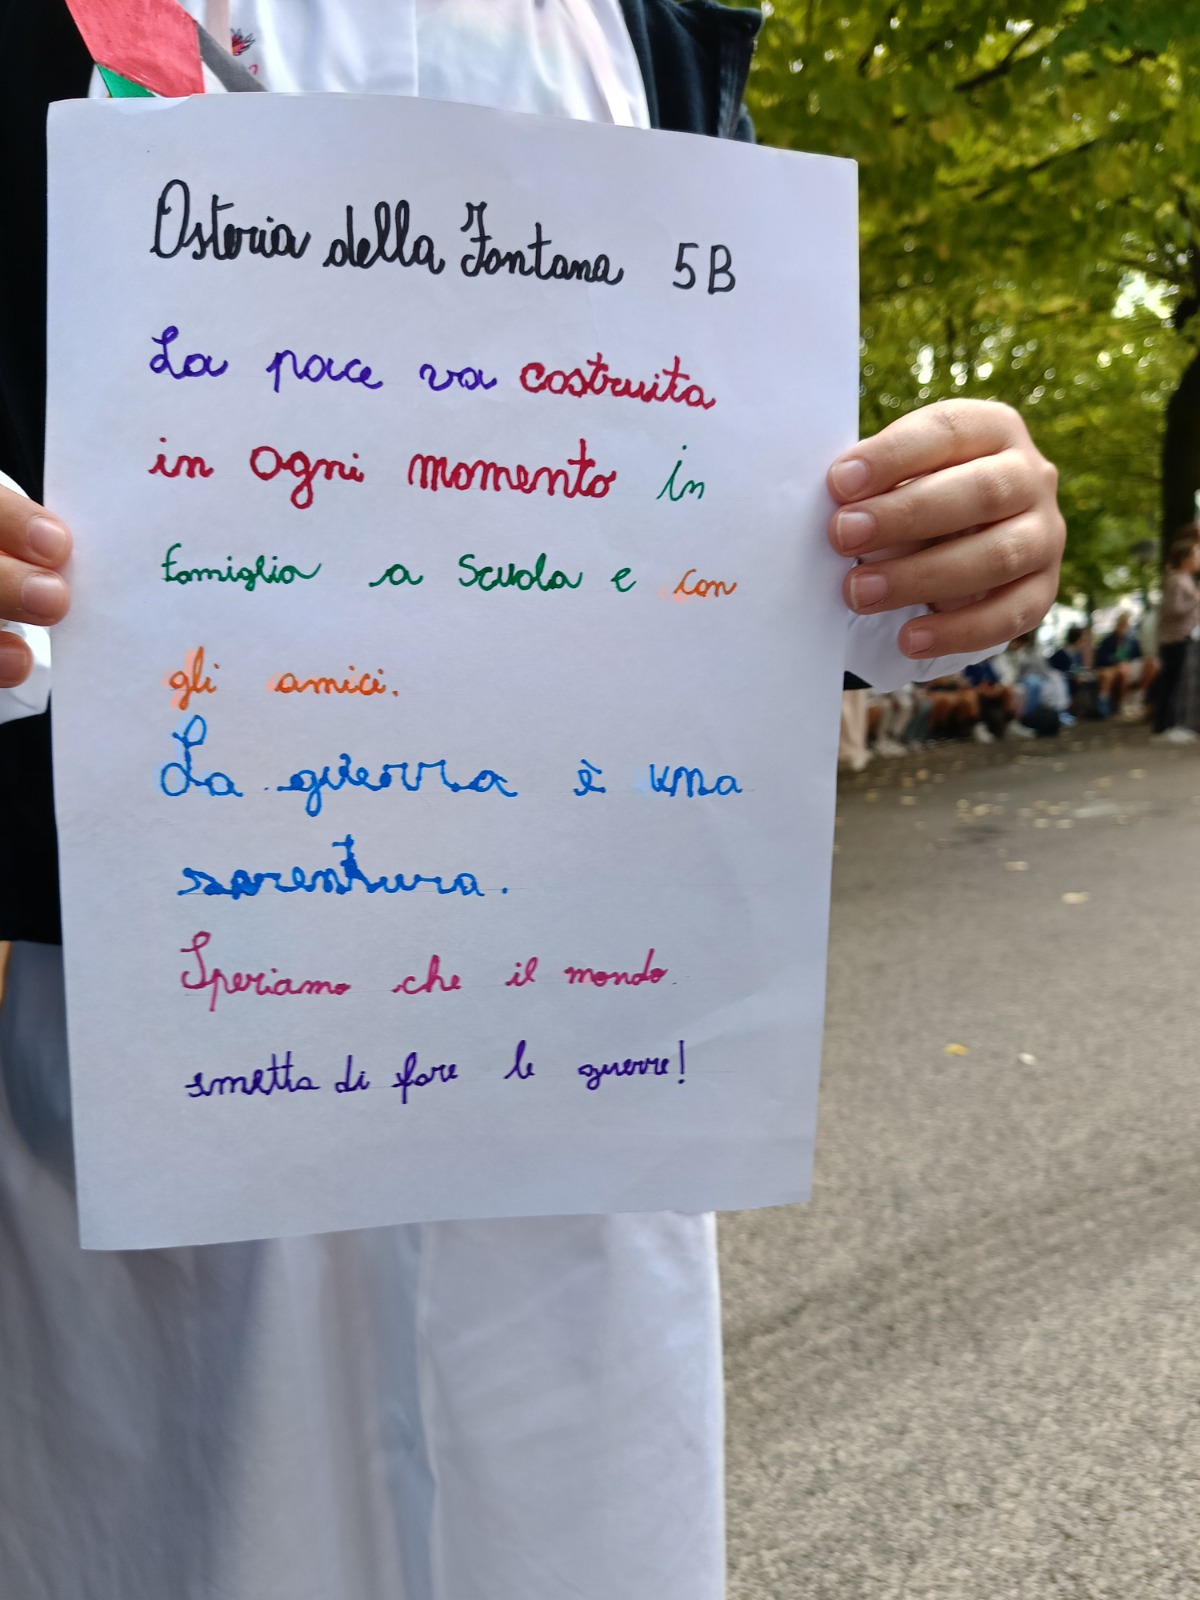 Osteria della Fontana 5B
La pace va costruita
in ogni momento in
famiglia a Scuola e con
gli amici.
La guerra è una
sventura.
Speriamo che il mondo
smetta di fare le guerre!